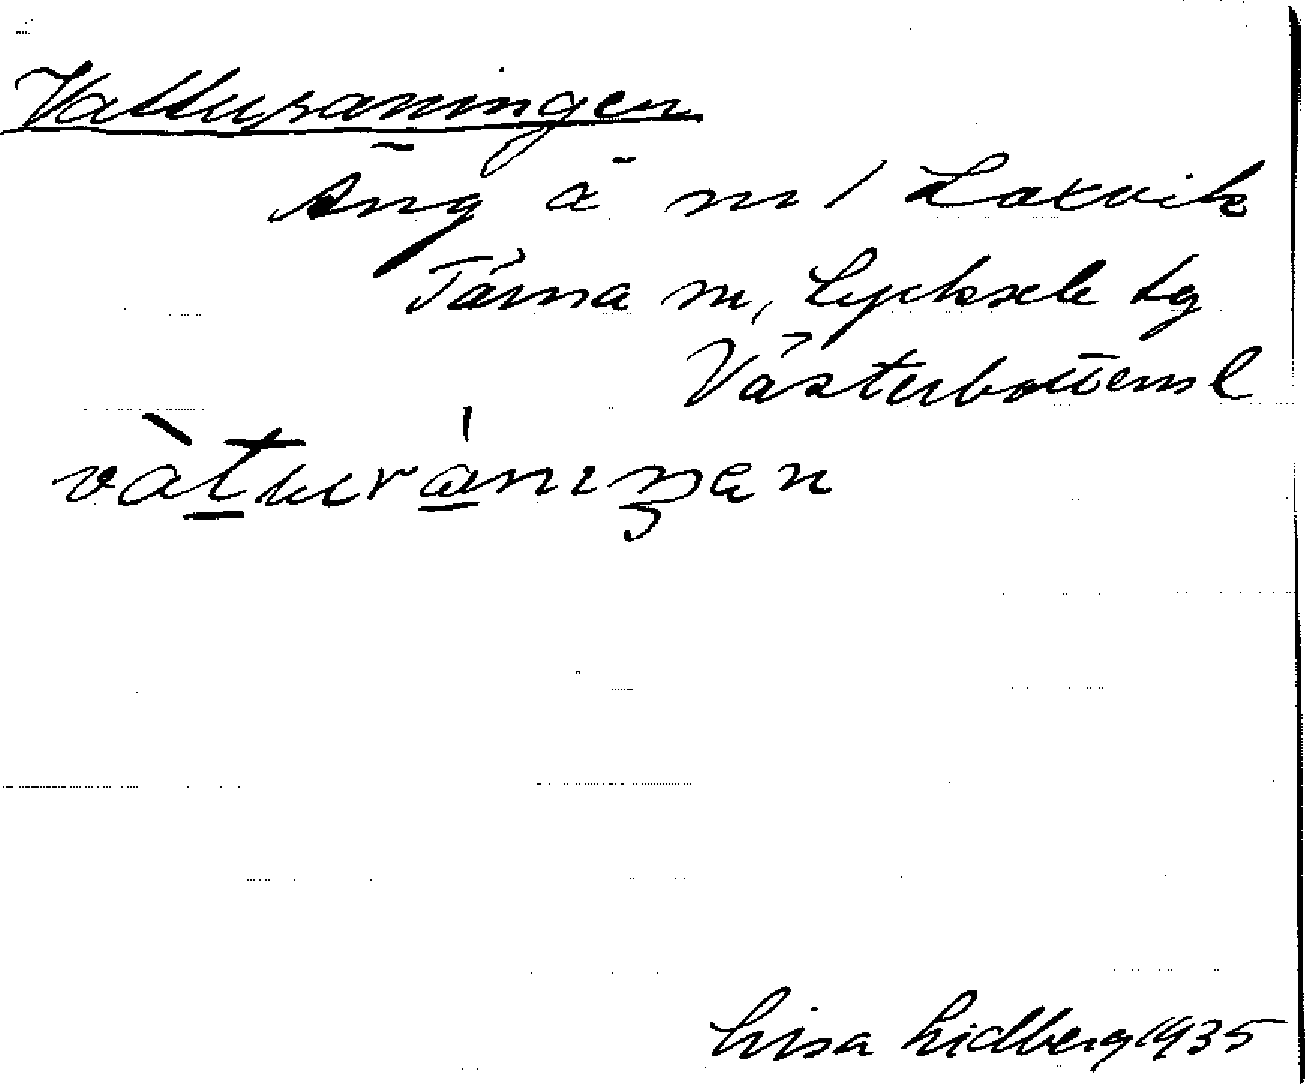 Vatturaningen
Äng å nr 1 Laxvik
Tärna sn, Lycksele lg
Västerbottens l
vàturánıŋen
Lisa Lidberg 1935